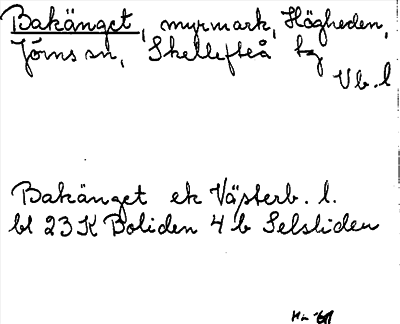 Bakänget, myrmark, Högheden,
Jörns sn, Skellefteå tg
Vb. l
Bakänget ek Västerb. l.
bl 23 K Boliden 4 b Selsliden